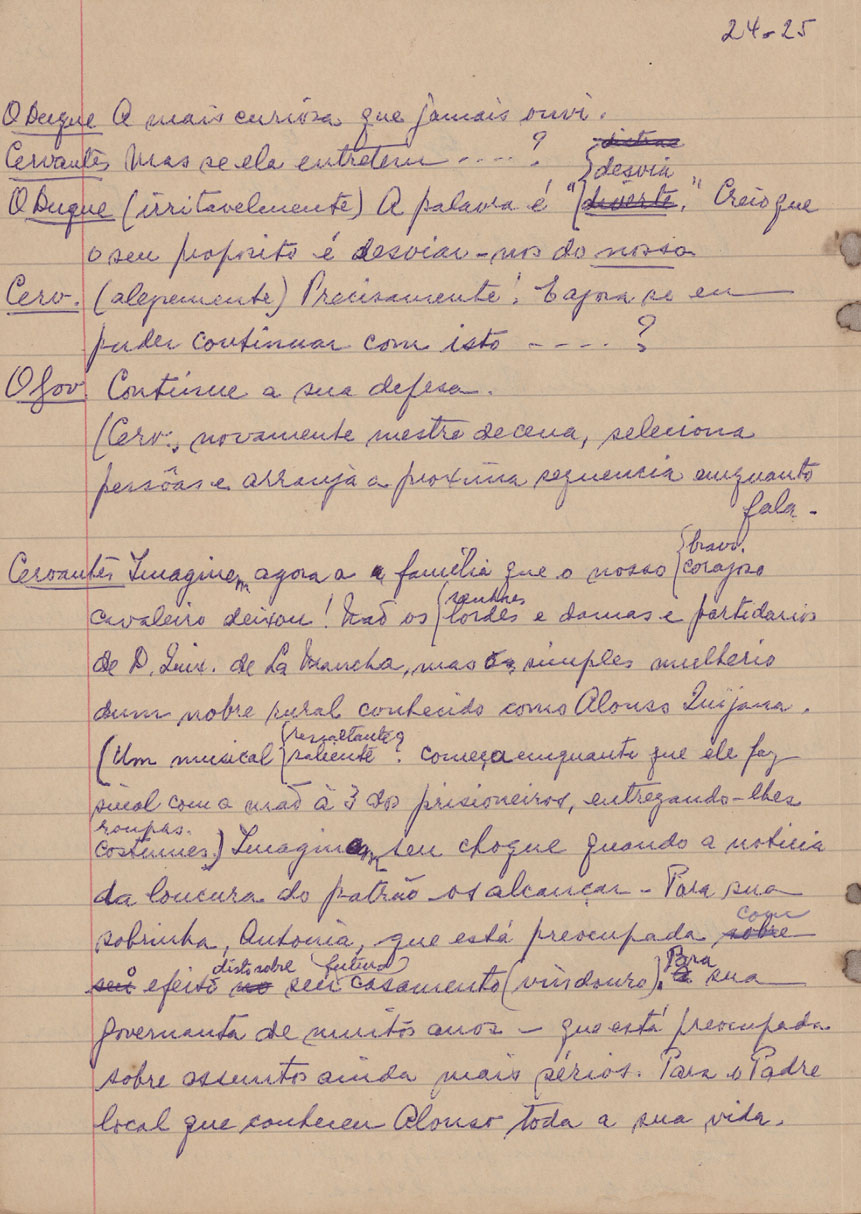 24-25
O Duque A mais curiosa que jamais ouvi.
Cervantes Mas se ela entretem ....?
distrae
desvia
O Duque (irritavelmente) A palavra é "diverte." Creio que
o seu proposito é desviar-nos do nosso
Cerv. (alegremente) Precisamente! E agora se eu
puder continuar com isto ----?
O Gov. Continue a sua defesa.
(Cerv., novamente mestre de cena, seleciona
pessôas e arranja a proxima sequencia emquanto
fala.
bravo.
Cervantes Imaginem agora a familia que o nosso corajoso
senhores
cavaleiro deixou! Não os lordes e damas e partidarios
de D. Quix. de La Mancha, mas simples mulherio
dum nobre rural conhecido como Alonso Quijana.
ressaltante?
(Um musical saliente? começa emquanto que ele faz
sinal com a mão à 3 dos prisioneiros, entregando-lhes
roupas.
costumes.) Imaginem seu choque quando a noticia
da loucura do patrão os alcançar - Para sua
com
sobrinha, Antonia, que está preocupada sobre
disto sobre futuro Para
seu o efeito no seu casamento (vindouro). a sua
governanta de muitos anos - que está preocupada
sobre assuntos ainda mais sérios. Para o Padre
local que conheceu Alonso toda a sua vida.